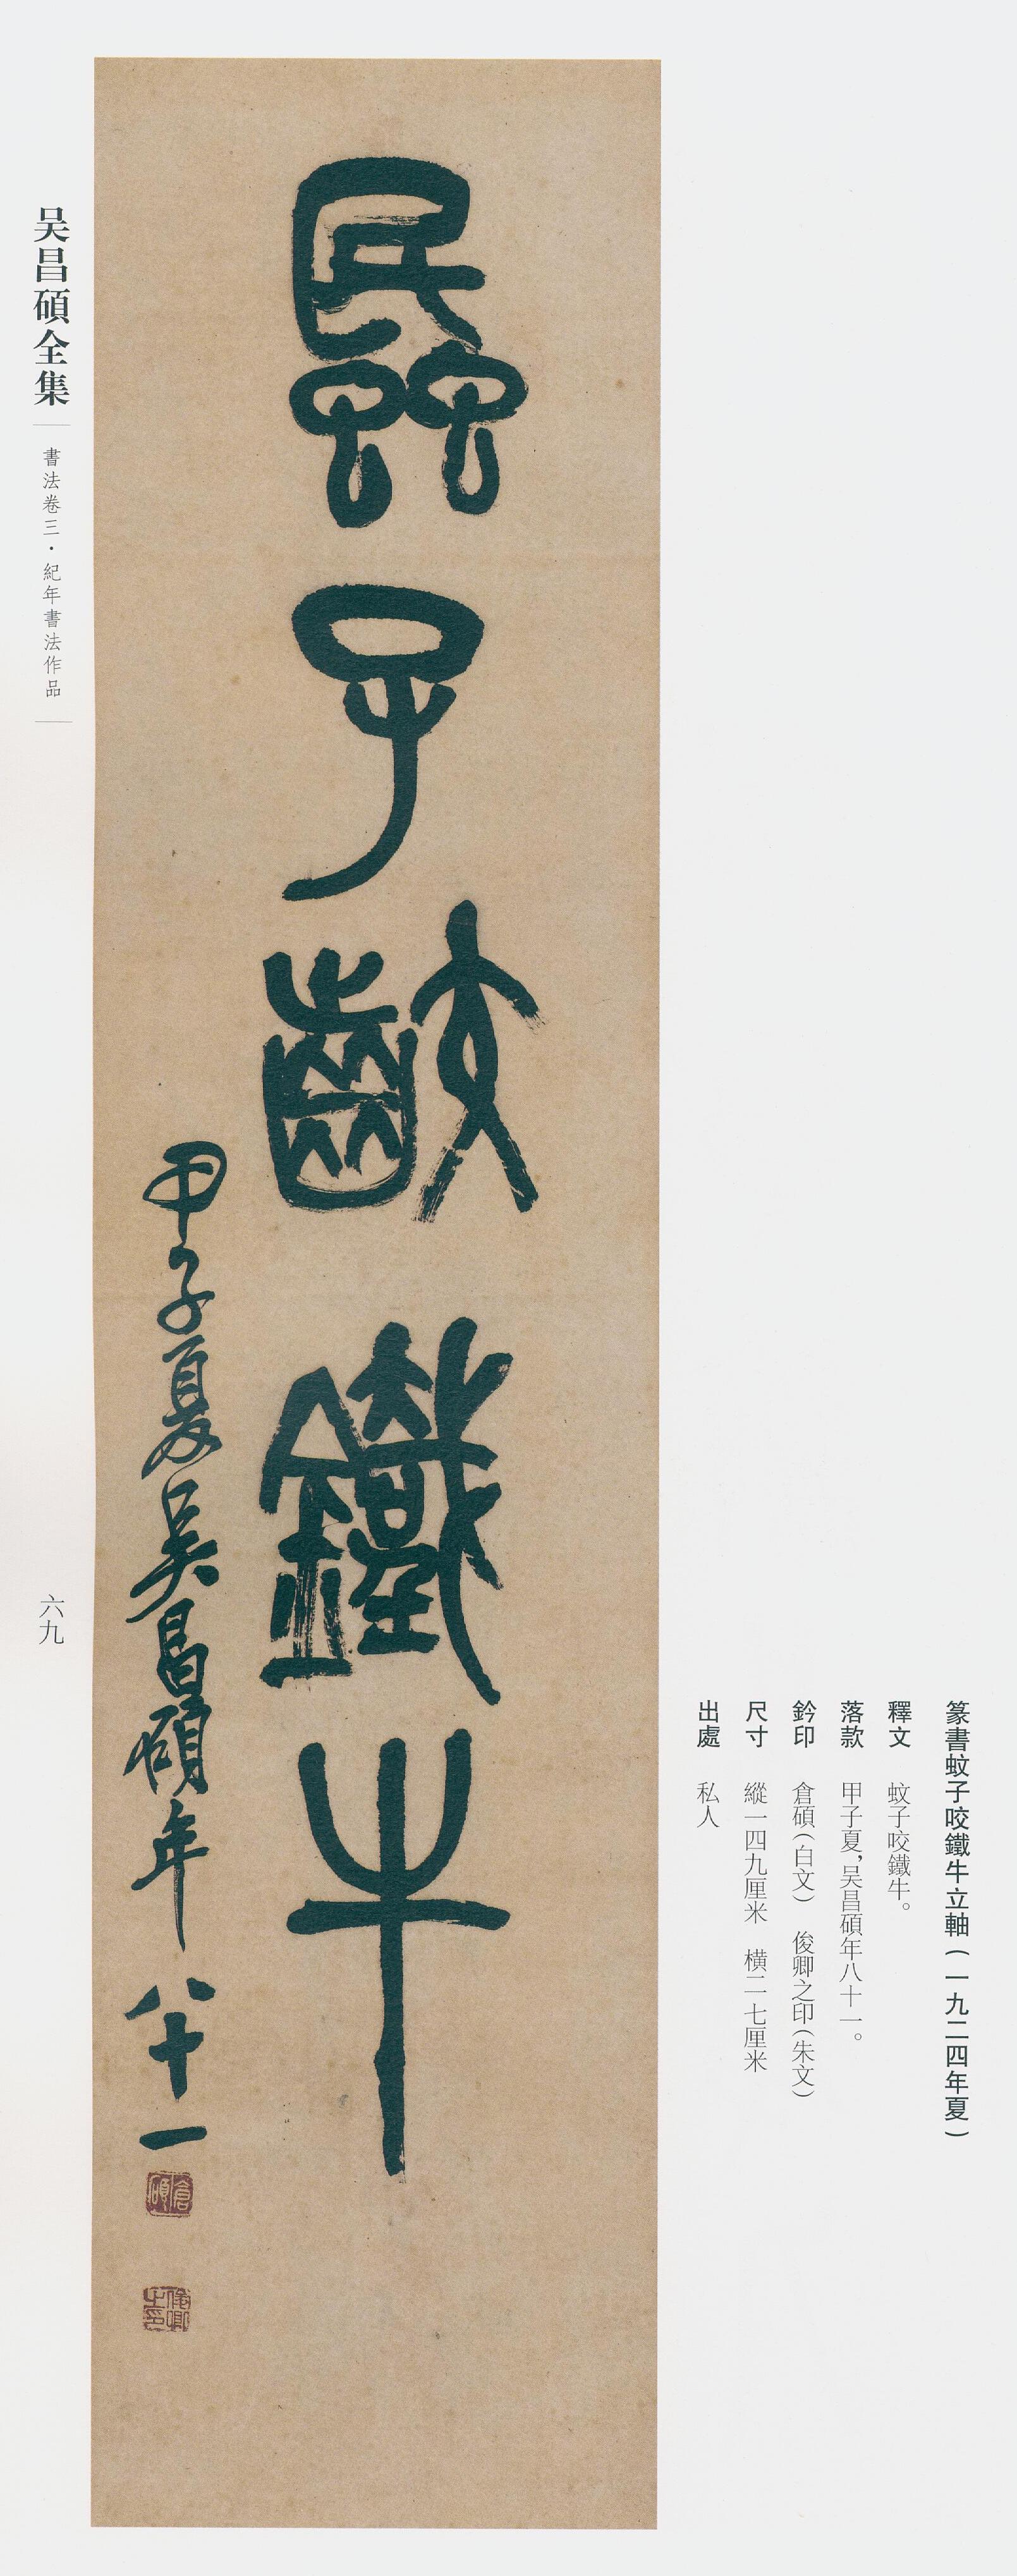 篆書蚊子咬鐵牛立軸（一九二四年夏）
釋文 蚊子咬鐵牛。
落款 甲子夏，吴昌碩年八十一。
鈐印 倉碩（白文） 俊卿之印（朱文）
尺寸 縱一四九厘米 橫二七厘米
出處 私人
䘇子䶣鐵牛
甲子夏吴昌碩年八十一
倉碩
俊卿之印
吴昌碩全集
書法卷三·紀年書法作品
六九